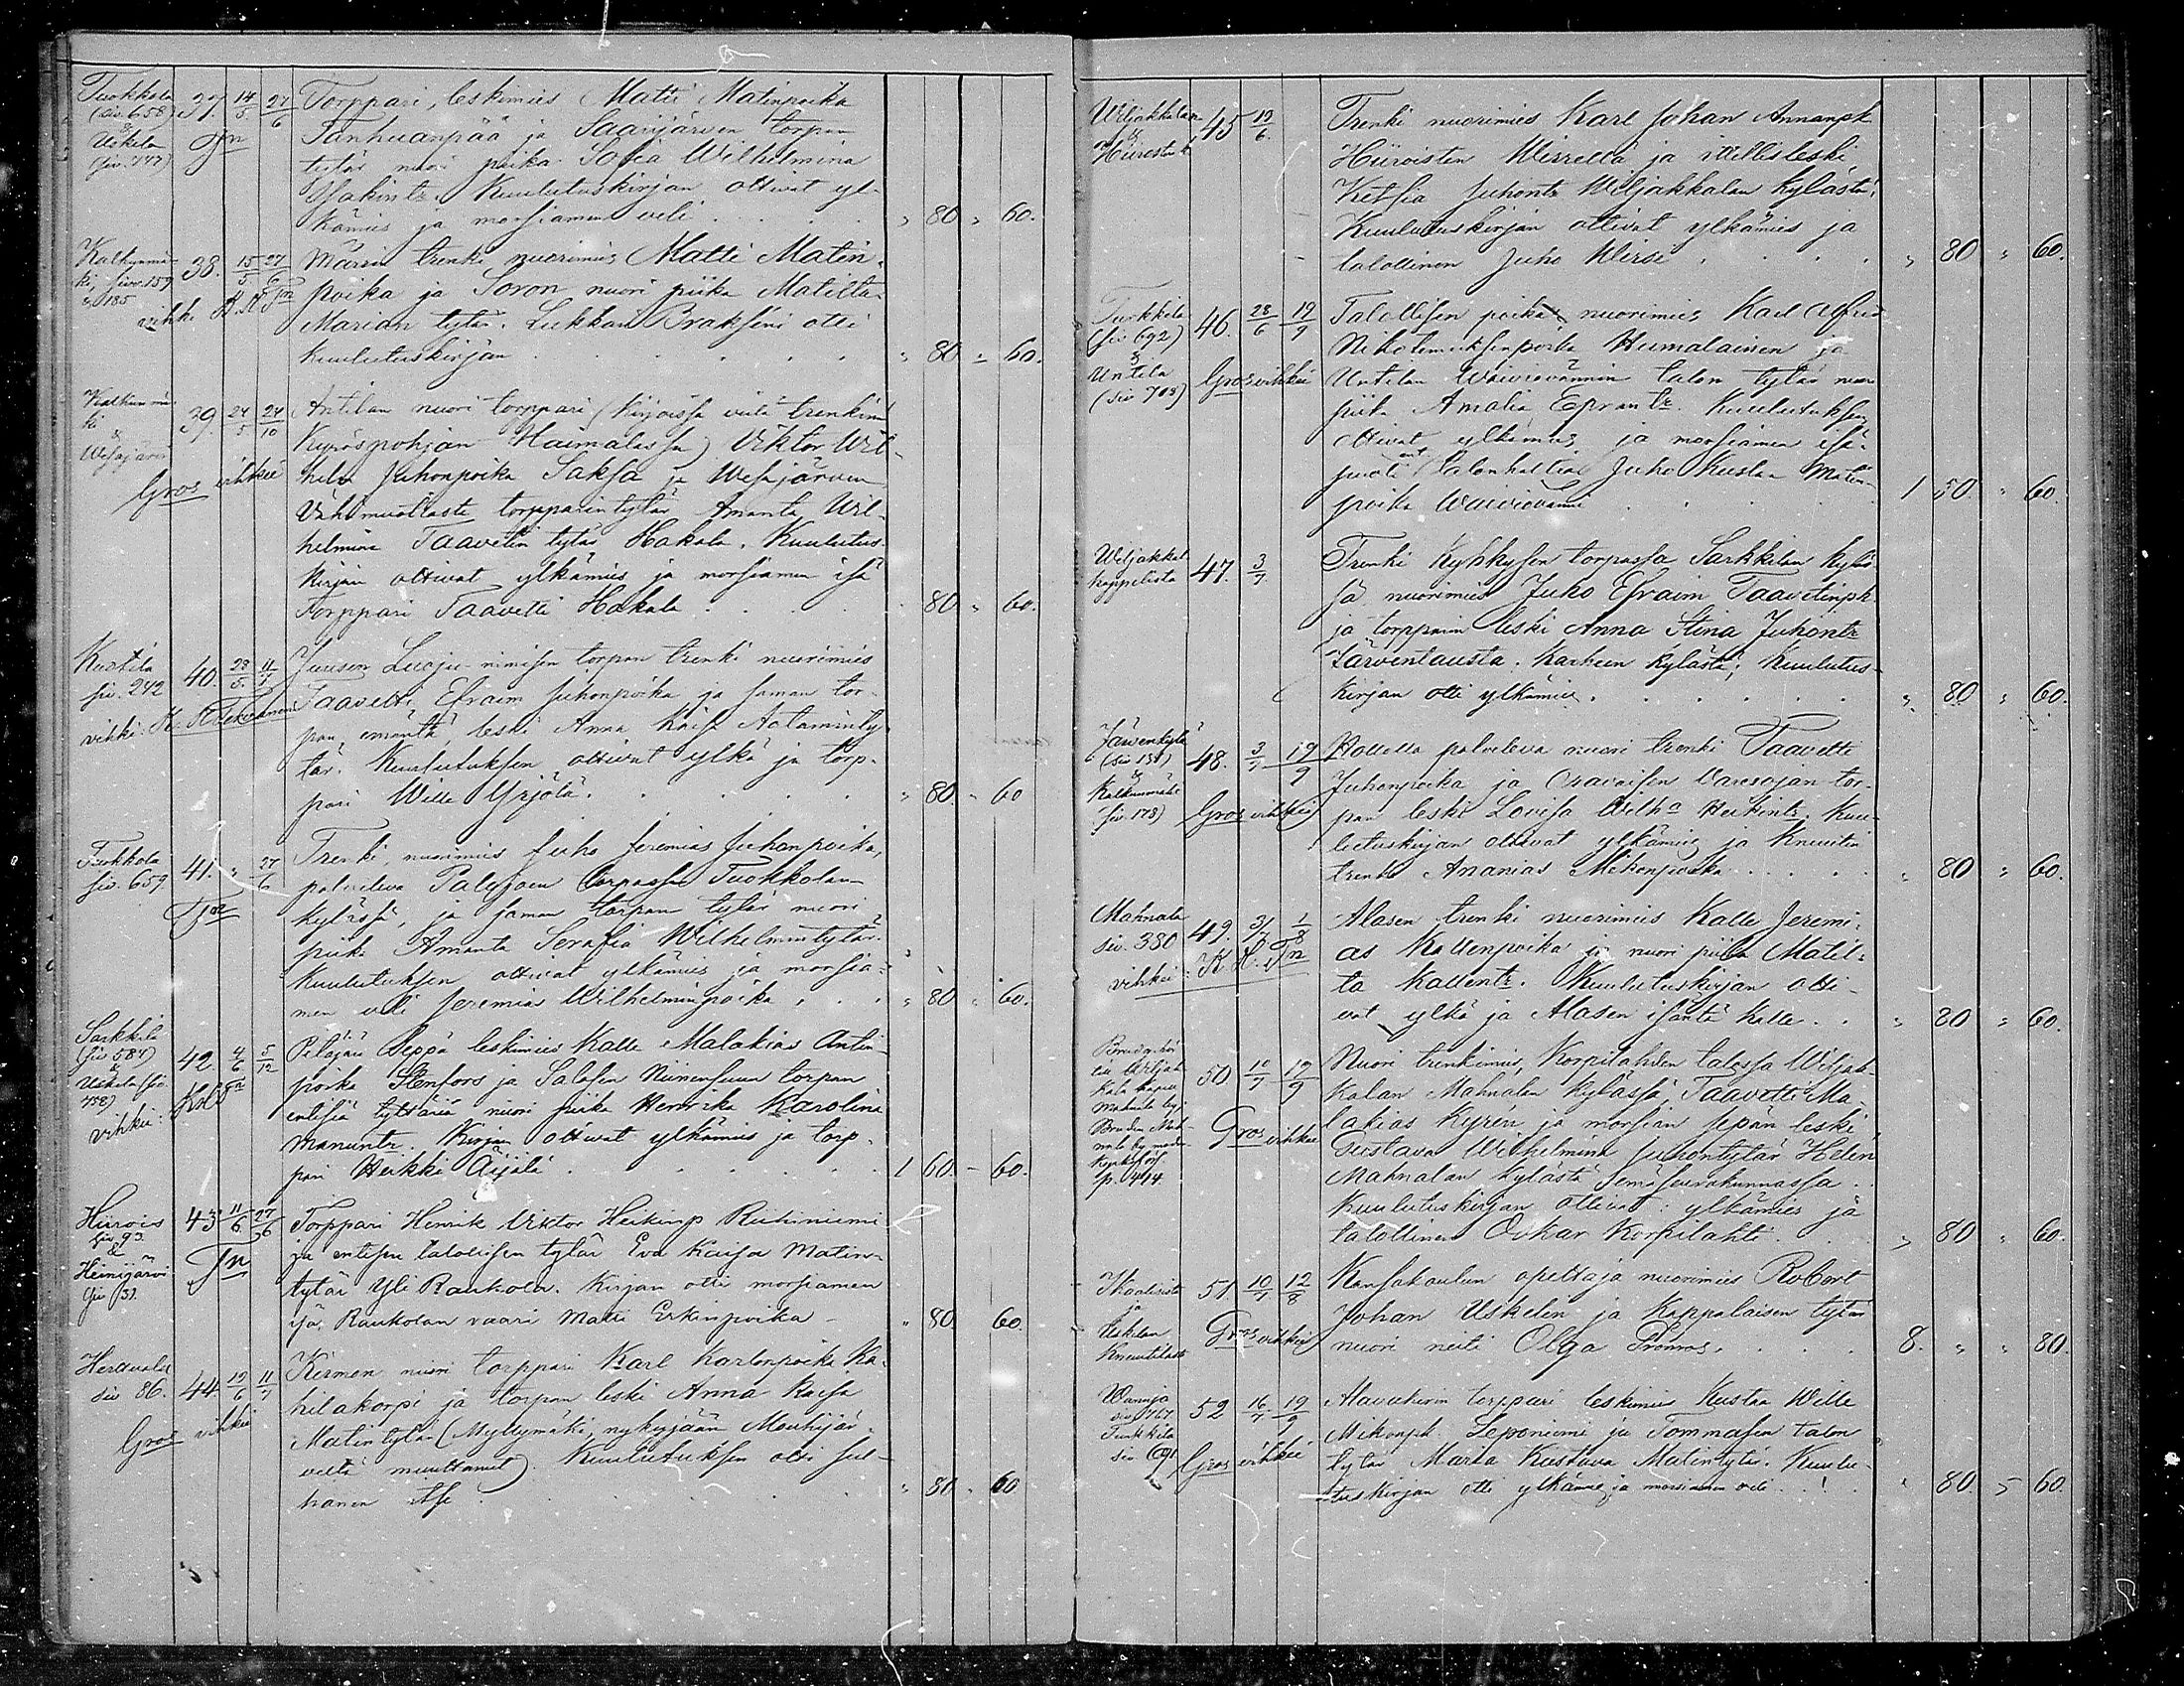 Tuokkola (siv. 658) & Uskela (siv. 747) 37. 14/5 27/6 Torppari, leskimies Matti Matinpoika
Tn Tanhuanpää ja Saarijärven torpan
tytär nuori piika Sofia Wilhelmina
Isakintr. Kuulutuskirjan ottivat yl-
kämies ja morsiamen veli . . . " 80 " 60.
Kalkunmä-
ki, siv. 159
" 185 38. 15/5 27/6 Märrin trenki nuorimies Matti Matin-
poika ja Soron nuori piika Matilta
vihki K. H. Tn Marian tytär. Lukkari Brakseni otti
kuulutuskirjan . . . . . " 80 " 60.
Kalkunmä-
ki
&
Wesajärvi 39. 24/5 24/10 Antilan nuori torppari (kirjoissa vielä trenkinä
Kyröspohjan Haimalassa) Viktor Wil-
Gros vihkii helm Juhonpoika Saksa ja Wesajärven
Vähämuotlasta torpparintytär Amanta Wil-
helmina Taavetin tytär Hakala. Kuulutus-
kirjan ottivat ylkämies ja morsiamen isä
Torppari Taavetti Hakala . . . . " 80 " 60.
Kostila
siv. 242 40. 28/5. 11/7 Juusen Luoju nimisen torpan trenki nuorimies
Taavetti Efraim Juhonpoika ja saman tor-
vihki: K. pan emäntä, leski Anna Kaisa Aataminty-
tär. Kuulutuksen ottivat ylkä ja torp-
pari Wille Yrjölä . . . . " 80. " 60
Tuokkola
siv. 659 41. " 27/6 Trenki, nuorimies Juho Jeremias Juhonpoika,
palveleva Palojoen torpassa Tuokkolan
Tn kylässä, ja saman torpan tytär nuori
piika Amanta Serafia Wilhelmintytär.
Kuulutuksen ottivat ylkämies ja morsia-
men veli Jeremias Wilhelminpoika . . . " 80 " 60.
Sarkkila
(siv 584)
&
Uskela (siv.
758) 42. 4/6 5/12 Pitäjän Seppä leskimies Kalle Malakias Antin
poika Stenfors ja Salosen Niinensuun torpan
vihkii: K. H. Tn entisiä tyttäriä nuori piika Henrika Karolina
Manuntr. Kirjan ottivat ylkämies ja torp-
pari Heikki Äijälä . . . . 1 60. - 60.
Hiirois
siv. 93.
&
Heinijärvi
siv 31. 43 11/6 27/6 Torppari Henrik Viktor Heikinp Riihiniemi
Tn ja entisen talollisen tytär Eva Kaisa Matin-
tytär Yli Raukola. Kirjan otti morsiamen
isä, Raukolan vaari Matti Erkinpoika - " 80. 60.
Herttuala
siv 86. 44. 19/6 11/7 Kirmon nuori torppari Karl Karlonpoika Ka-
hilakorpi ja torpan leski Anna Kaisa
Gros vihkii Matintytär (Myllymäki, nykyjään Mouhijär-
veltä muuttanut). Kuulutuksen otti sul-
hanen itse . . . . " 80 " 60
Wiljakkalan
&
45 19/6. Trenki nuorimies Karl Johan Annanpk
Hiiroisten Wirrella ja itellisleski
Ketsia Juhontr Wiljakkalan kylästä.
Kuulutuskirjan ottivat ylkämies ja
talollinen Juho Wirsi . . . . " 80 " 60.
Turkkila
(siv 692)
&
Untila
(siv 708) 46. 28/6 19/9 Talollisen poika, nuorimies Karl Alfred
Nikotemuksenpoika Humalainen ja
Gros vihkii Untilan Waiviovännin talon tytär nuori
piika Amalia Eprantr. Kuulutuksen
ottivat ylkämies ja morsiamen isä-
puoli talonhaltia Juho Kustaa Matin-
poika Waiviovänni . . . 1 50. " 60.
Wiljakkal
kappelista 47. 3/7 Trenki Kyhkysen torpassa Sarkkilan kyläs-
sä nuorimies Juho Efraim Taavetinpk.
ja torpparin leski Anna Stina Juhontr
Järventausta Karheen kylästä; Kuulutus-
kirjan otti ylkämies . . . . " 80 " 60.
Järvenkylä
(siv 151)
&
Kalkunmäki
siv. 178) 48. 3/7 19/9 palveleva nuori trenki Taavetti
Juhonpoika ja Oravaisen Varesojan tor-
Gros vihkii pan leski Lovisa Wilha Heikintr. Kuu-
lutuskirjan ottivat ylkämies ja Knuutin
trenki Ananias Mikonpoika . . . . " 80 " 60.
Mahnala
siv. 380 49. 3/7 1/8 Alasen trenki nuorimies Kalle Jeremi-
as Kallenpoika ja nuori piika Matil-
vihkii: K. H. Tn ta Kallentr. Kuulutuskirjan otti-
vat ylkä ja Alasen isäntä Kalle . . " 80 " 60.
50 10/7 19/9 Nuori trenkimies, Korpilahden talossa Wiljak-
kalan Mahnalan kylässä, Taavetti Ma-
lakias Kyrén ja morsian sepän leski
Gros vihkii Gustava Wilhelmina Juhontytär Helin
Mahnalan kylästä Emäseurakunnassa.
p. 414 Kuulutuskirjan ottivat: ylkämies ja
talollinen Oskar Korpilahti . . . " 80 " 60.
Ikaalisista
ja
Uskelan
Knuutilasta 51. 10/7 12/8 Kansakoulun opettaja nuorimies Robert
Johan Uskelin ja Kappalaisen tytär
Gros vihkii nuori neiti Olga . . . . 8. " " 80.
siv 767
Turkkila
siv 52 16/7 19/9 torppari leskimies Kustaa Wille
Mikonpk. Leponiemi ja Tommasen talon
Gros vihkii tytär Maria Kustava Matintytär. Kuulu-
tuskirjan otti ylkämies ja morsiamen veli . . . " 80. " 60.